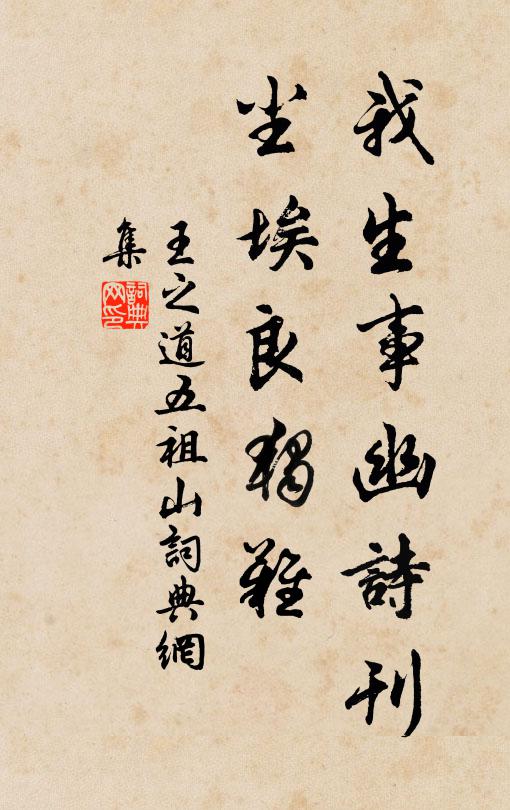 我生事幽詩刊
尘埃良獨難
王之道五祖山詞典網
集
詞典
网印